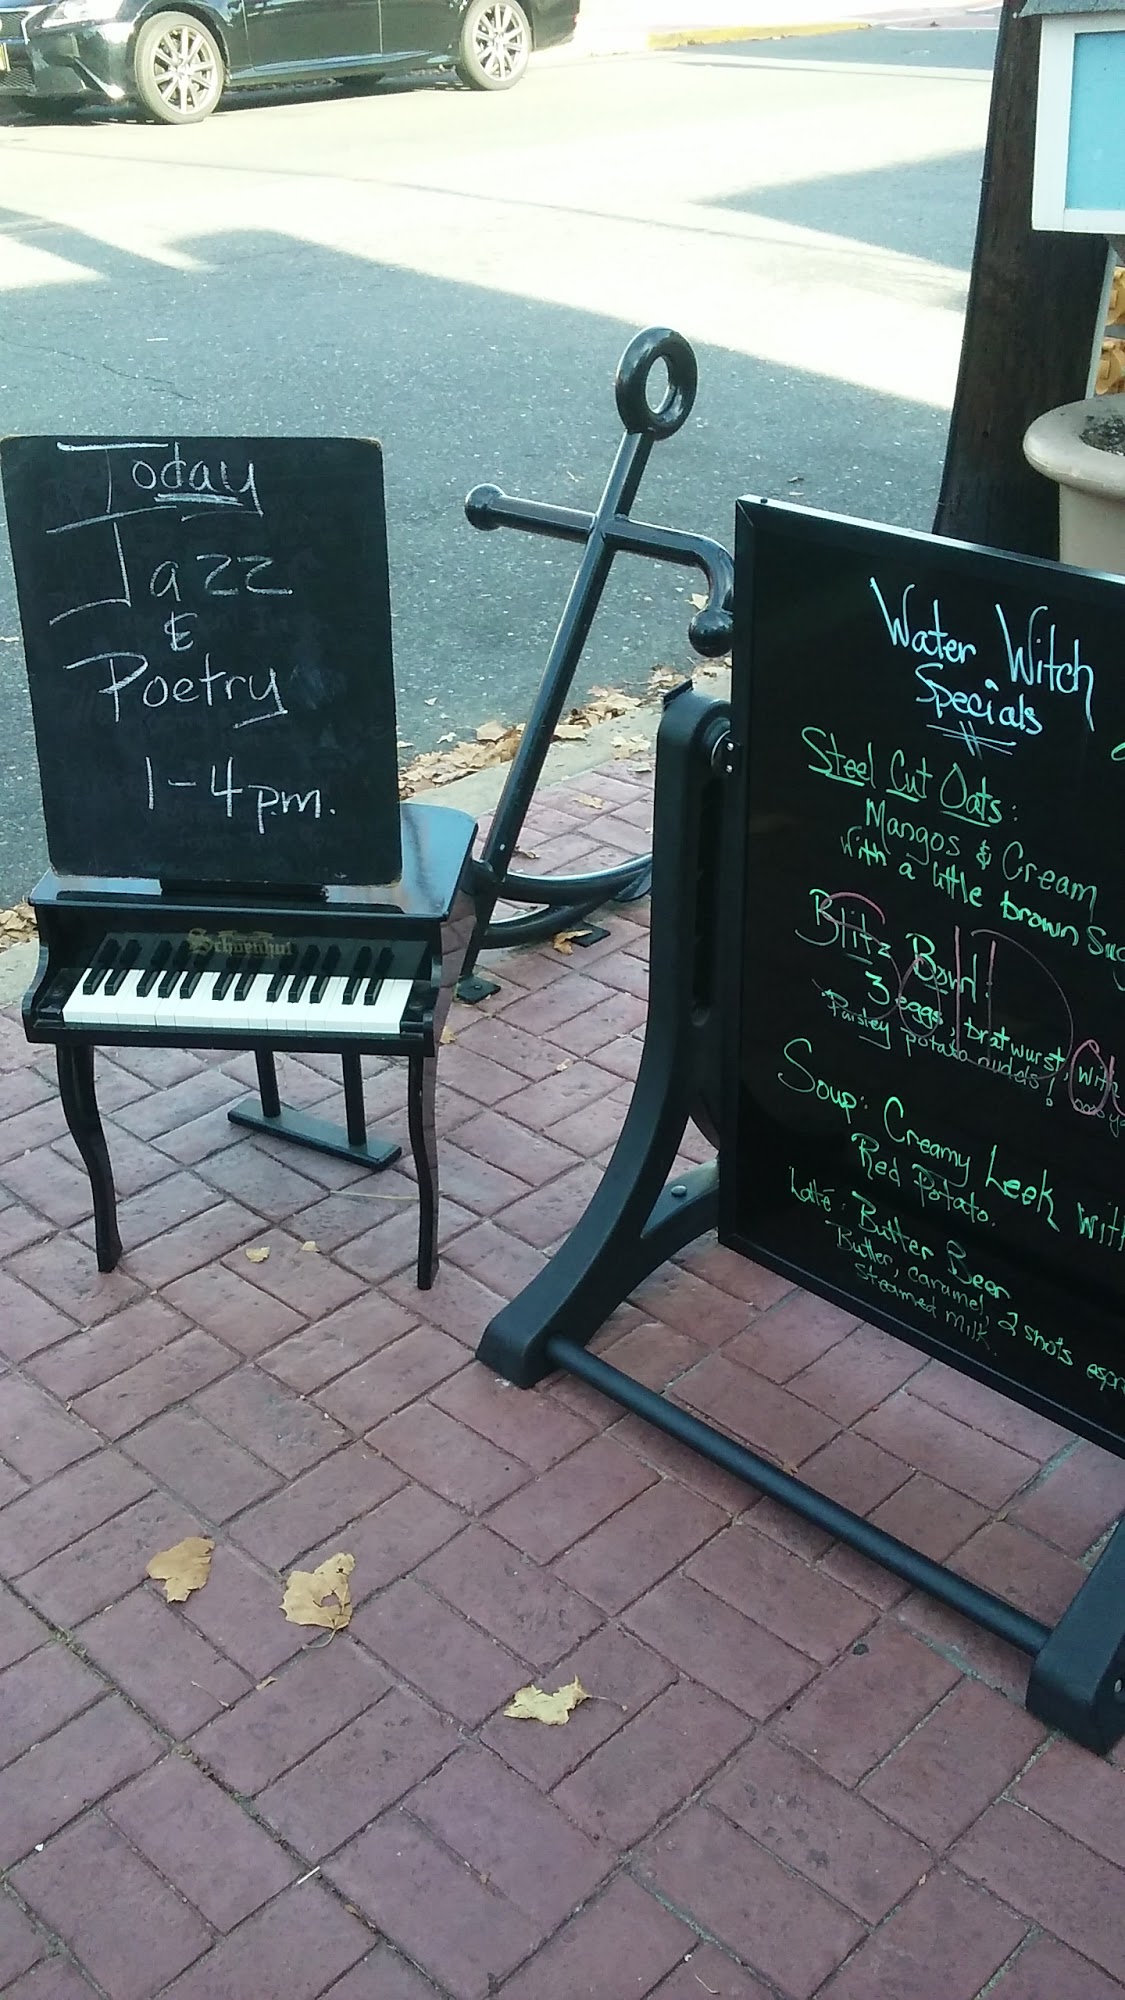 Today
Jazz
&
Poetry
1-4 p.m.
Schoenhut
Water Witch
Specials
Steel Cut Oats:
Mangos & Cream
with a little brown sug
Blitz Bowl:
3 eggs, bratwurst, with
Parsley potato nudels!
Soup: Creamy Leek with
Red Potato.
Latté: Butter Beer
Butter, caramel, 2 shots espr
steamed milk.